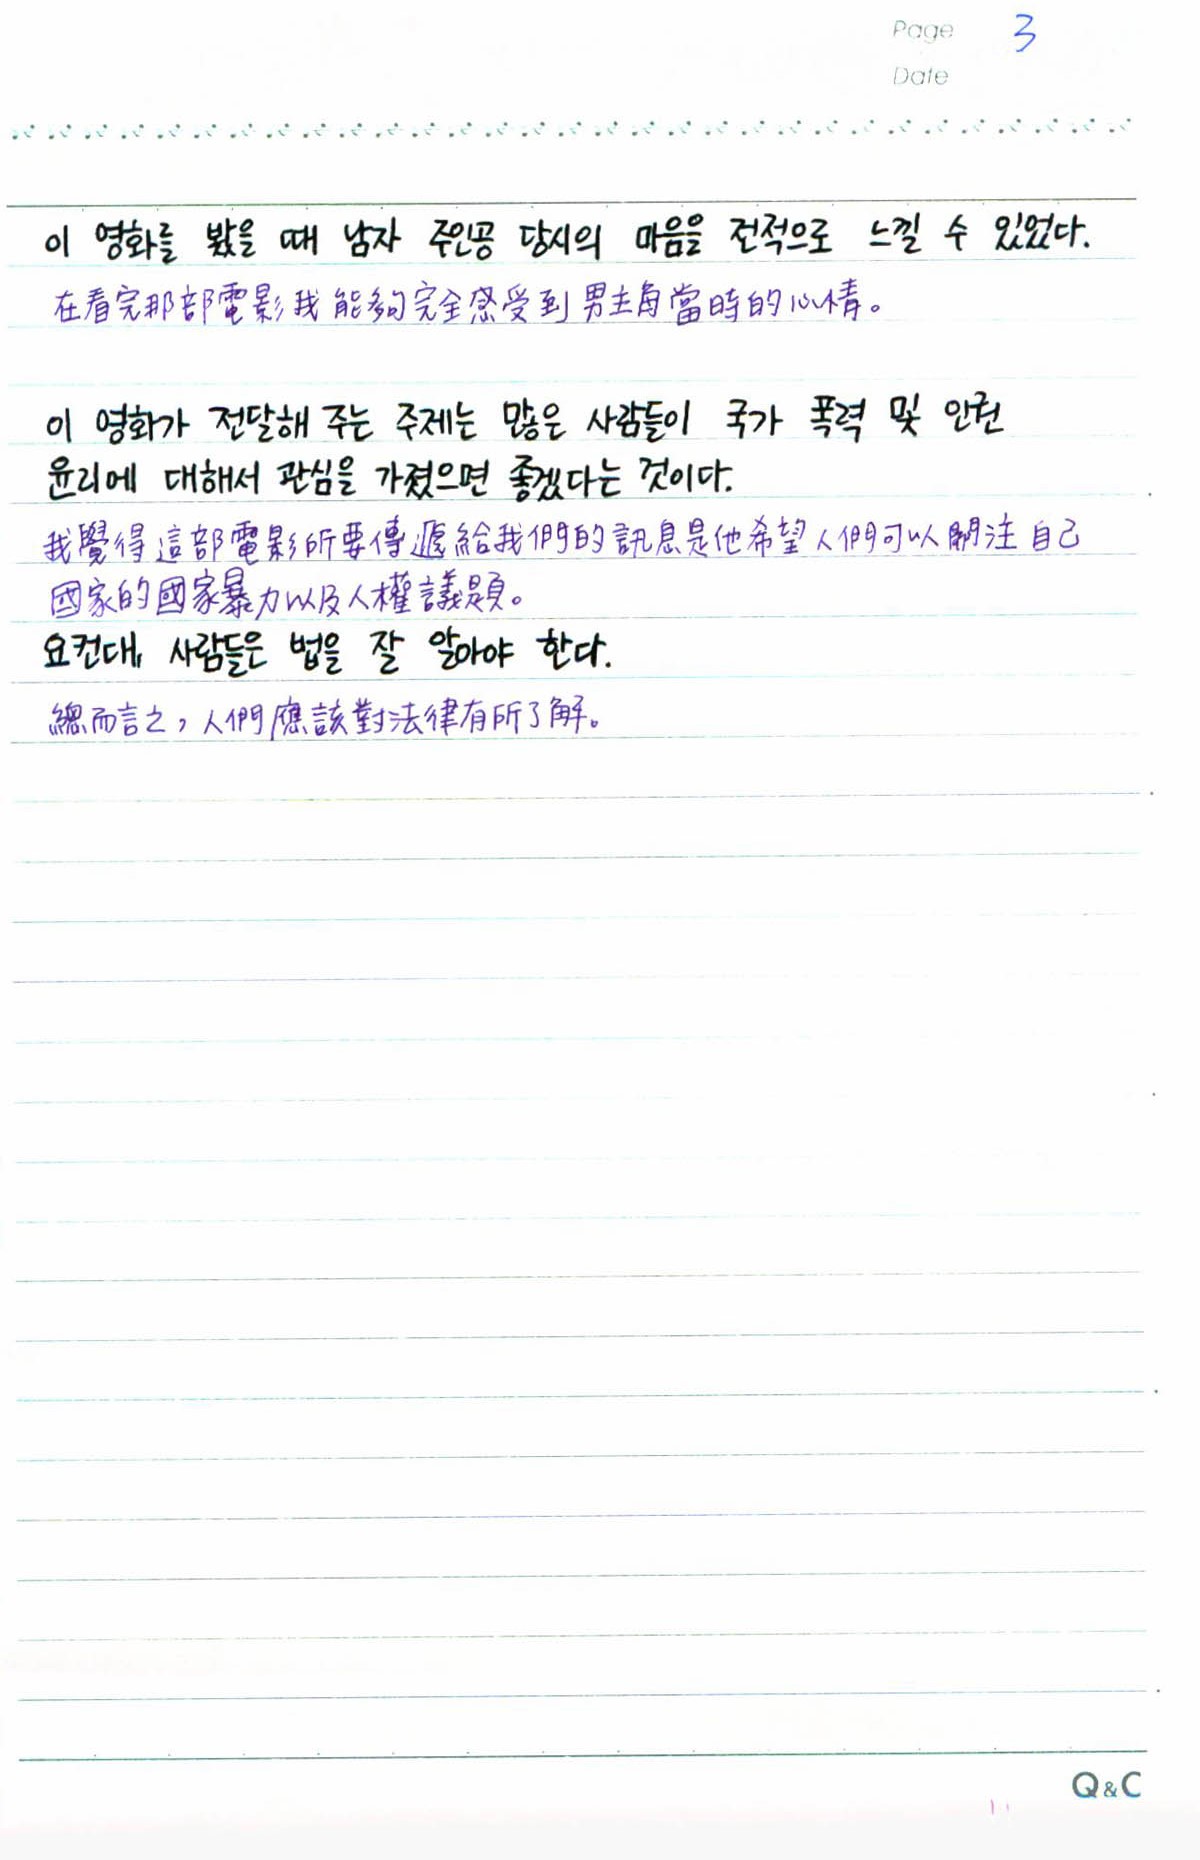 Page 3
Date
이 영화를 봤을 때 남자 주인공 당시의 마음을 전적으로 느낄 수 있었다.
在看完那部電影我能夠完全感受到男主角當時的心情。
이 영화가 전달해 주는 주제는 많은 사람들이 국가 폭력 및 인권
윤리에 대해서 관심을 가졌으면 좋겠다는 것이다.
我覺得這部電影所要傳遞給我們的訊息是他希望人們可以關注自己
國家的國家暴力以及人權議題。
요컨대, 사람들은 법을 잘 알아야 한다.
總而言之，人們應該對法律有所了解。
Q&C